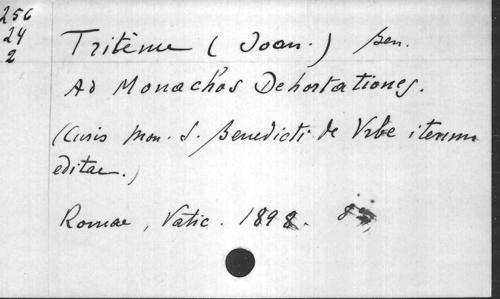 256
24
2
Tritème (Joan.) Ben.
Ad Monachos Dehortationes.
(Curis Mon. S. Benedicti de Urbe iterum
editae.)
Romae, Vatic. 1898. 8º